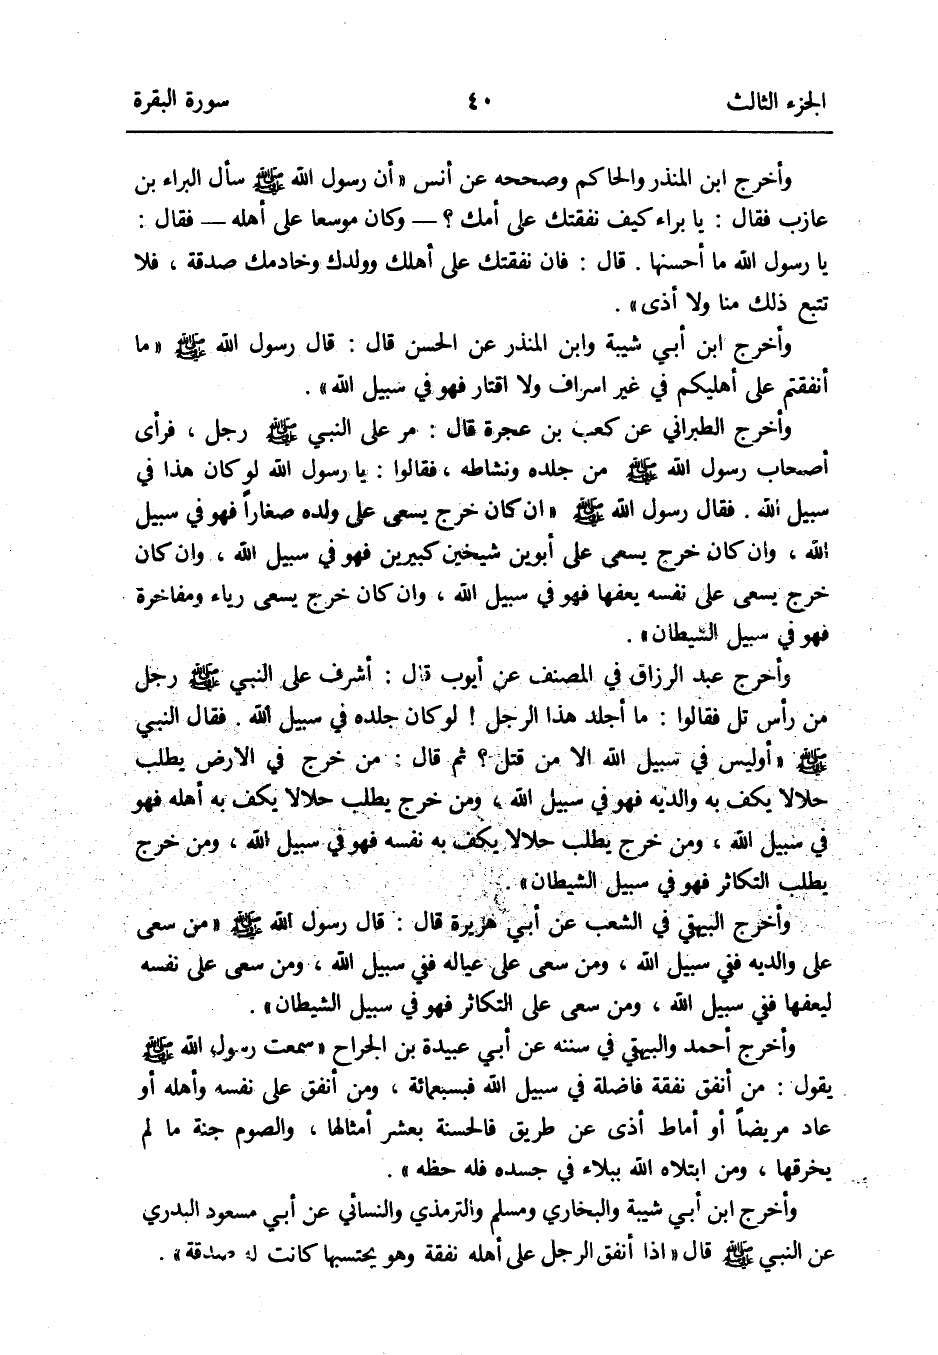 الجزء الثالث
٤٠
سورة البقرة
وأخرج ابن المنذر والحاكم وصححه عن أنس «أن رسول الله ﷺ سأل البراء بن
عازب فقال : يا براء كيف نفقتك على أمك ؟ — وكان موسعا على أهله — فقال :
يا رسول الله ما أحسنها . قال : فان نفقتك على أهلك وولدك وخادمك صدقة ، فلا
تتبع ذلك منا ولا أذى» .
وأخرج ابن أبي شيبة وابن المنذر عن الحسن قال : قال رسول الله ﷺ «ما
أنفقتم على أهليكم في غير اسراف ولا اقتار فهو في سبيل الله» .
وأخرج الطبراني عن كعب بن عجرة قال : مر على النبي ﷺ رجل ، فرأى
أصحاب رسول الله ﷺ من جلده ونشاطه ، فقالوا : يا رسول الله لو كان هذا في
سبيل الله . فقال رسول الله ﷺ «ان كان خرج يسعى على ولده صغاراً فهو في سبيل
الله ، وان كان خرج يسعى على أبوين شيخين كبيرين فهو في سبيل الله ، وان كان
خرج يسعى على نفسه يعفها فهو في سبيل الله ، وان كان خرج يسعى رياء ومفاخرة
فهو في سبيل الشيطان» .
وأخرج عبد الرزاق في المصنف عن أيوب قال : أشرف على النبي ﷺ رجل
من رأس تل فقالوا : ما أجلد هذا الرجل ! لو كان جلده في سبيل الله . فقال النبي
ﷺ «أوليس في سبيل الله الا من قتل؟ ثم قال : من خرج في الارض يطلب
حلالا يكف به والديه فهو في سبيل الله ، ومن خرج يطلب حلالا يكف به أهله فهو
في سبيل الله ، ومن خرج يطلب حلالا يكف به نفسه فهو في سبيل الله ، ومن خرج
يطلب التكاثر فهو في سبيل الشيطان» .
وأخرج البيهقي في الشعب عن أبي هريرة قال : قال رسول الله ﷺ «من سعى
على والديه ففي سبيل الله ، ومن سعى على عياله ففي سبيل الله ، ومن سعى على نفسه
ليعفها ففي سبيل الله ، ومن سعى على التكاثر فهو في سبيل الشيطان» .
وأخرج أحمد والبيهقي في سننه عن أبي عبيدة بن الجراح «سمعت رسول الله ﷺ
يقول : من أنفق نفقة فاضلة في سبيل الله فبسبعمائة ، ومن أنفق على نفسه وأهله أو
عاد مريضاً أو أماط أذى عن طريق فالحسنة بعشر أمثالها ، والصوم جنة ما لم
يخرقها ، ومن ابتلاه الله ببلاء في جسده فله حظه » .
وأخرج ابن أبي شيبة والبخاري ومسلم والترمذي والنسائي عن أبي مسعود البدري
عن النبي ﷺ قال «اذا أنفق الرجل على أهله نفقة وهو يحتسبها كانت له صدقة» .